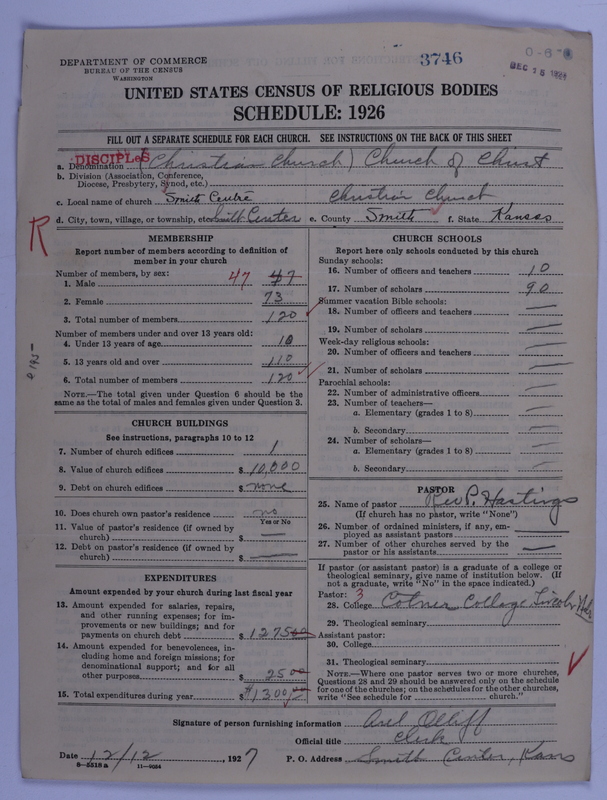 DEPARTMENT OF COMMERCE
BUREAU OF THE CENSUS
WASHINGTON
3746
O-6
DEC 15 192
UNITED STATES CENSUS OF RELIGIOUS BODIES
SCHEDULE: 1926
FILL OUT A SEPARATE SCHEDULE FOR EACH CHURCH. SEE INSTRUCTIONS ON THE BACK OF THIS SHEET
DISCIPLES
a. Denomination (Christian Church) Church of Christ
b. Division (Association, Conference,
Diocese, Presbytery, Synod, etc.)
c. Local name of church Smith Centre Christian Church
d. City, town, village, or township, etc. Smith Center e. County Smith f. State Kansas
R
MEMBERSHIP
Report number of members according to definition of
member in your church
Number of members, by sex:
1. Male 47 47
2. Female 73
3. Total number of members 120
Number of members under and over 13 years old:
4. Under 13 years of age 10
5. 13 years old and over 110
6. Total number of members 120
NOTE.—The total given under Question 6 should be
same as the total of males and females given under Question 3.
CHURCH BUILDINGS
See instructions, paragraphs 10 to 12
7. Number of church edifices 1
8. Value of church edifices $ 10,000
9. Debt on church edifices $ none
10. Does church own pastor's residence no
Yes or No
11. Value of pastor's residence (if owned by
church) $ —
12. Debt on pastor's residence (if owned by
church) $ —
EXPENDITURES
Amount expended by your church during last fiscal year
13. Amount expended for salaries, repairs,
and other running expenses; for im-
provements or new buildings; and for
payments on church debt $ 1275 00
14. Amount expended for benevolences, in-
cluding home and foreign missions; for
denominational support; and for all
other purposes $ 25 00
15. Total expenditures during year $ 1300 00
CHURCH SCHOOLS
Report here only schools conducted by this church
Sunday schools:
16. Number of officers and teachers 10
17. Number of scholars 90
Summer vacation Bible schools:
18. Number of officers and teachers —
19. Number of scholars —
Week-day religious schools:
20. Number of officers and teachers —
21. Number of scholars —
Parochial schools:
22. Number of administrative officers —
23. Number of teachers—
a. Elementary (grades 1 to 8) —
b. Secondary —
24. Number of scholars—
a. Elementary (grades 1 to 8) —
b. Secondary —
PASTOR
25. Name of pastor Rev P. Hastings
(If church has no pastor, write "None")
26. Number of ordained ministers, if any, em-
ployed as assistant pastors —
27. Number of other churches served by the
pastor or his assistants —
If pastor (or assistant pastor) is a graduate of a college or
theological seminary, give name of institution below. (If
not a graduate, write "No" in the space indicated.)
Pastor: 3
28. College Cotner Collage Lincoln Neb
29. Theological seminary
Assistant pastor:
30. College
31. Theological seminary
NOTE.—Where one pastor serves two or more churches,
Questions 28 and 29 should be answered only on the schedule
for one of the churches; on the schedules for the other churches,
write "See schedule for church."
Signature of person furnishing information Olliff
Official title Clerk
Date 12/12, 1927 P. O. Address Smith Center, Kans
8-5518 a 11-9064